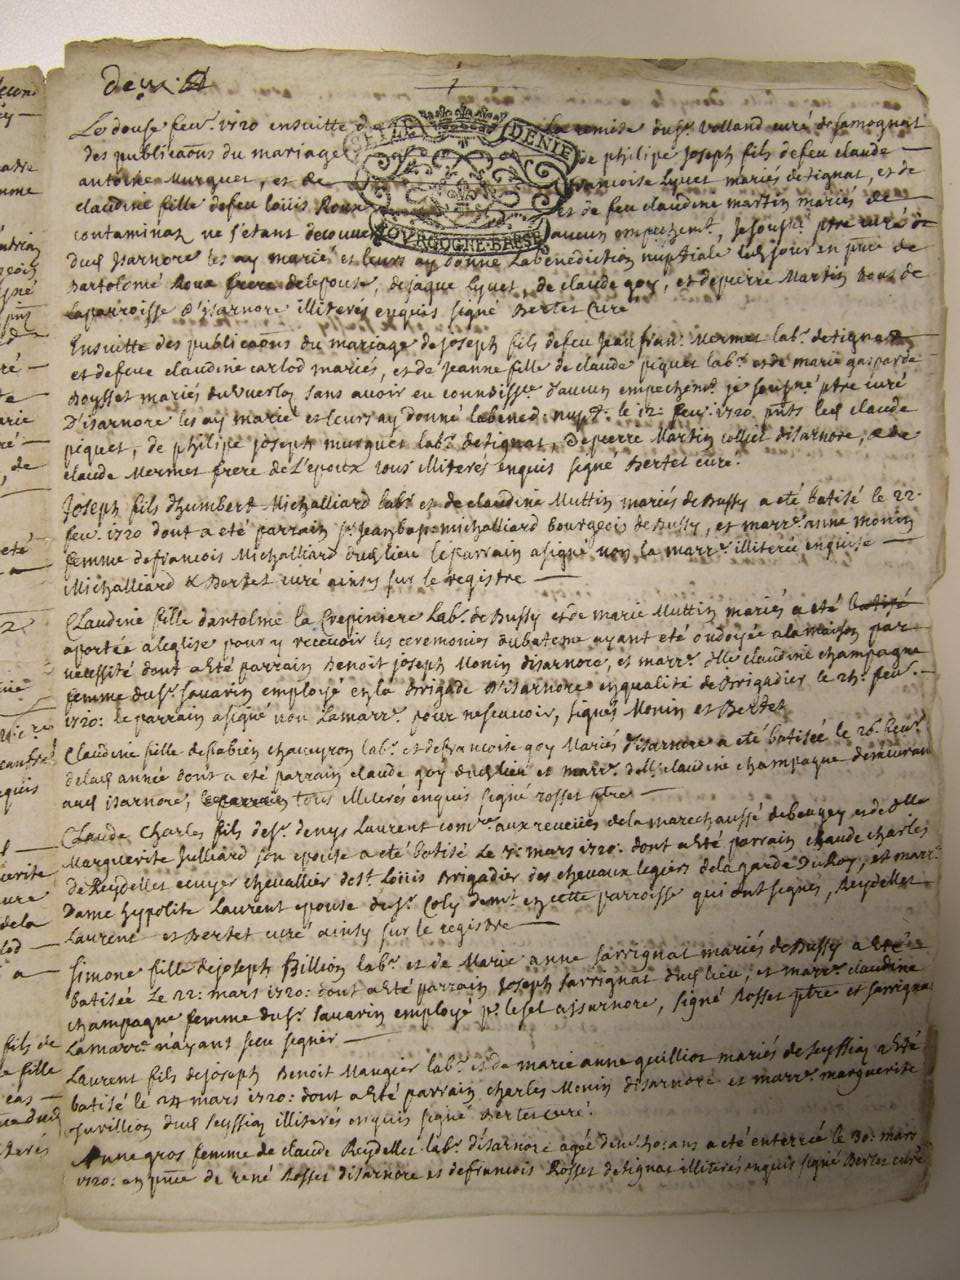 deux
Le douse fevr. 1720 ensuitte de la remise du sr. Volland curé de Samognat
GEN DENIE
des publicaons du mariage de philipe Joseph fils de feu claude
antoine Murguet, et de francoise Lyvet mariés de tignat, et de
claudine fille de feu Louis Roux et de feu claudine martin mariés de
contaminaz ne s'etant decouvert aucun empechemt. Je soussr. ptre curé
BOURGOGNE BRESSE
dud Isarnore les ay mariés et leurs ay donné La benediction nuptiale led jour en pnce de
Bartolomé Roux frere de lepouse, de jaque Lyvet, de claude goy, et de pierre Martin tous de
la parroisse d'Isarnore illiterés enquis signé Bertet Curé
Ensuitte des publicaons du mariage de Joseph fils de feu Jean fran: Mermet labr. de tignat
et de feue claudine carlod mariés, et de Jeanne fille de claude piquet labr. et de marie gasparde
Boysset mariés du Vuerloz sans avoir eu connoissce. d'aucun empechemt je sousigné ptre curé
D'isarnore les ay marié et leurs ay donné la bened: nupt. le 12: fevr. 1720 pnts led claude
piquet, de philipe joseph murguet labr. de tignat, de pierre Martin collet disarnore, et de
claude Mermet frere de L'epoux tous illiterés enquis signé Bertet curé.
Joseph fils dhumbert Michalliard labr. et de claudine Muttin mariés de Bussy a eté batisé le 22
fevr. 1720 dont a eté parrain sr. Jeanbape. michalliard Bourgeois de Bussy, et marre. anne monin
femme de francois Michalliard dud lieu le parrain a signé non la marre. illiterée enquise
Michalliard & Bertet curé ainsy sur le registre
Claudine fille dantolme la Crepiniere Labr. de Bussy et de marie Muttin mariés a eté batisé
aportée a leglise pour y recevoir les ceremonies du bateme ayant eté ondoyée a la maison par
necessité dont a eté parrain Benoit Joseph Monin disarnore, et marre. dlle claudine champagne
femme du sr. Savarin employé en la Brigade D'isarnore en qualité de Brigadier le 24. fevr.
1720: Le parrain a signé non La marre. pour ne scavoir, signés Monin et Bertet
Claudine fille de fabien chaveyron labr. et de francoise goy Mariés d'isarnore a eté batisée le 26. fevr.
de lad année dont a eté parrain claude goy dud lieu et marre. dlle claudine champagne demeurant
aud isarnore, le parrain tous illiterés enquis signé rosset ptre
Claude Charles fils de sr. denys Laurent comre. aux reveües de la marechaussé de beugey et de dlle
Marguerite Julliard son epouse a eté batisé Le 7: mars 1720: dont a eté parrain claude charles
de Reydellet ecuyer chevallier de st. Louis Brigadier des chevaux legiers de la garde du Roy, et marre.
Dame hypolite Laurent epouse de sr. Coly demt. en cette parroisse qui ont signés, Reydellet
Laurent et Bertet curé ainsy sur le registre
Simone fille de joseph Billion labr. et de Marie anne Sarrignat mariés de Bussy a eté
batisée Le 22: mars 1720: dont a eté parrain Joseph Sarrignat dud lieu, et marre. claudine
champagne femme du sr. Savarin employé pr. le sel a isarnore, signé Rosset ptre et Sarrignat
La marre. n'ayant sceu signer
Laurent fils de joseph Benoit Maugier labr. et de marie anne guilliot mariés de Seyssia a eté
batisé le 24 mars 1720: dont a eté parrain charles Monin disarnore et marre. marguerite
Juvillion dud Seyssia illiterés enquis signé Bertet curé.
Anne gros femme de claude Reydellet labr. disarnore agée denv. 40: ans a eté enterrée le 30: mars
1720: en pnce de rené Rosset disarnore et de francois Rosset de tignat illiterés enquis signé Bertet curé